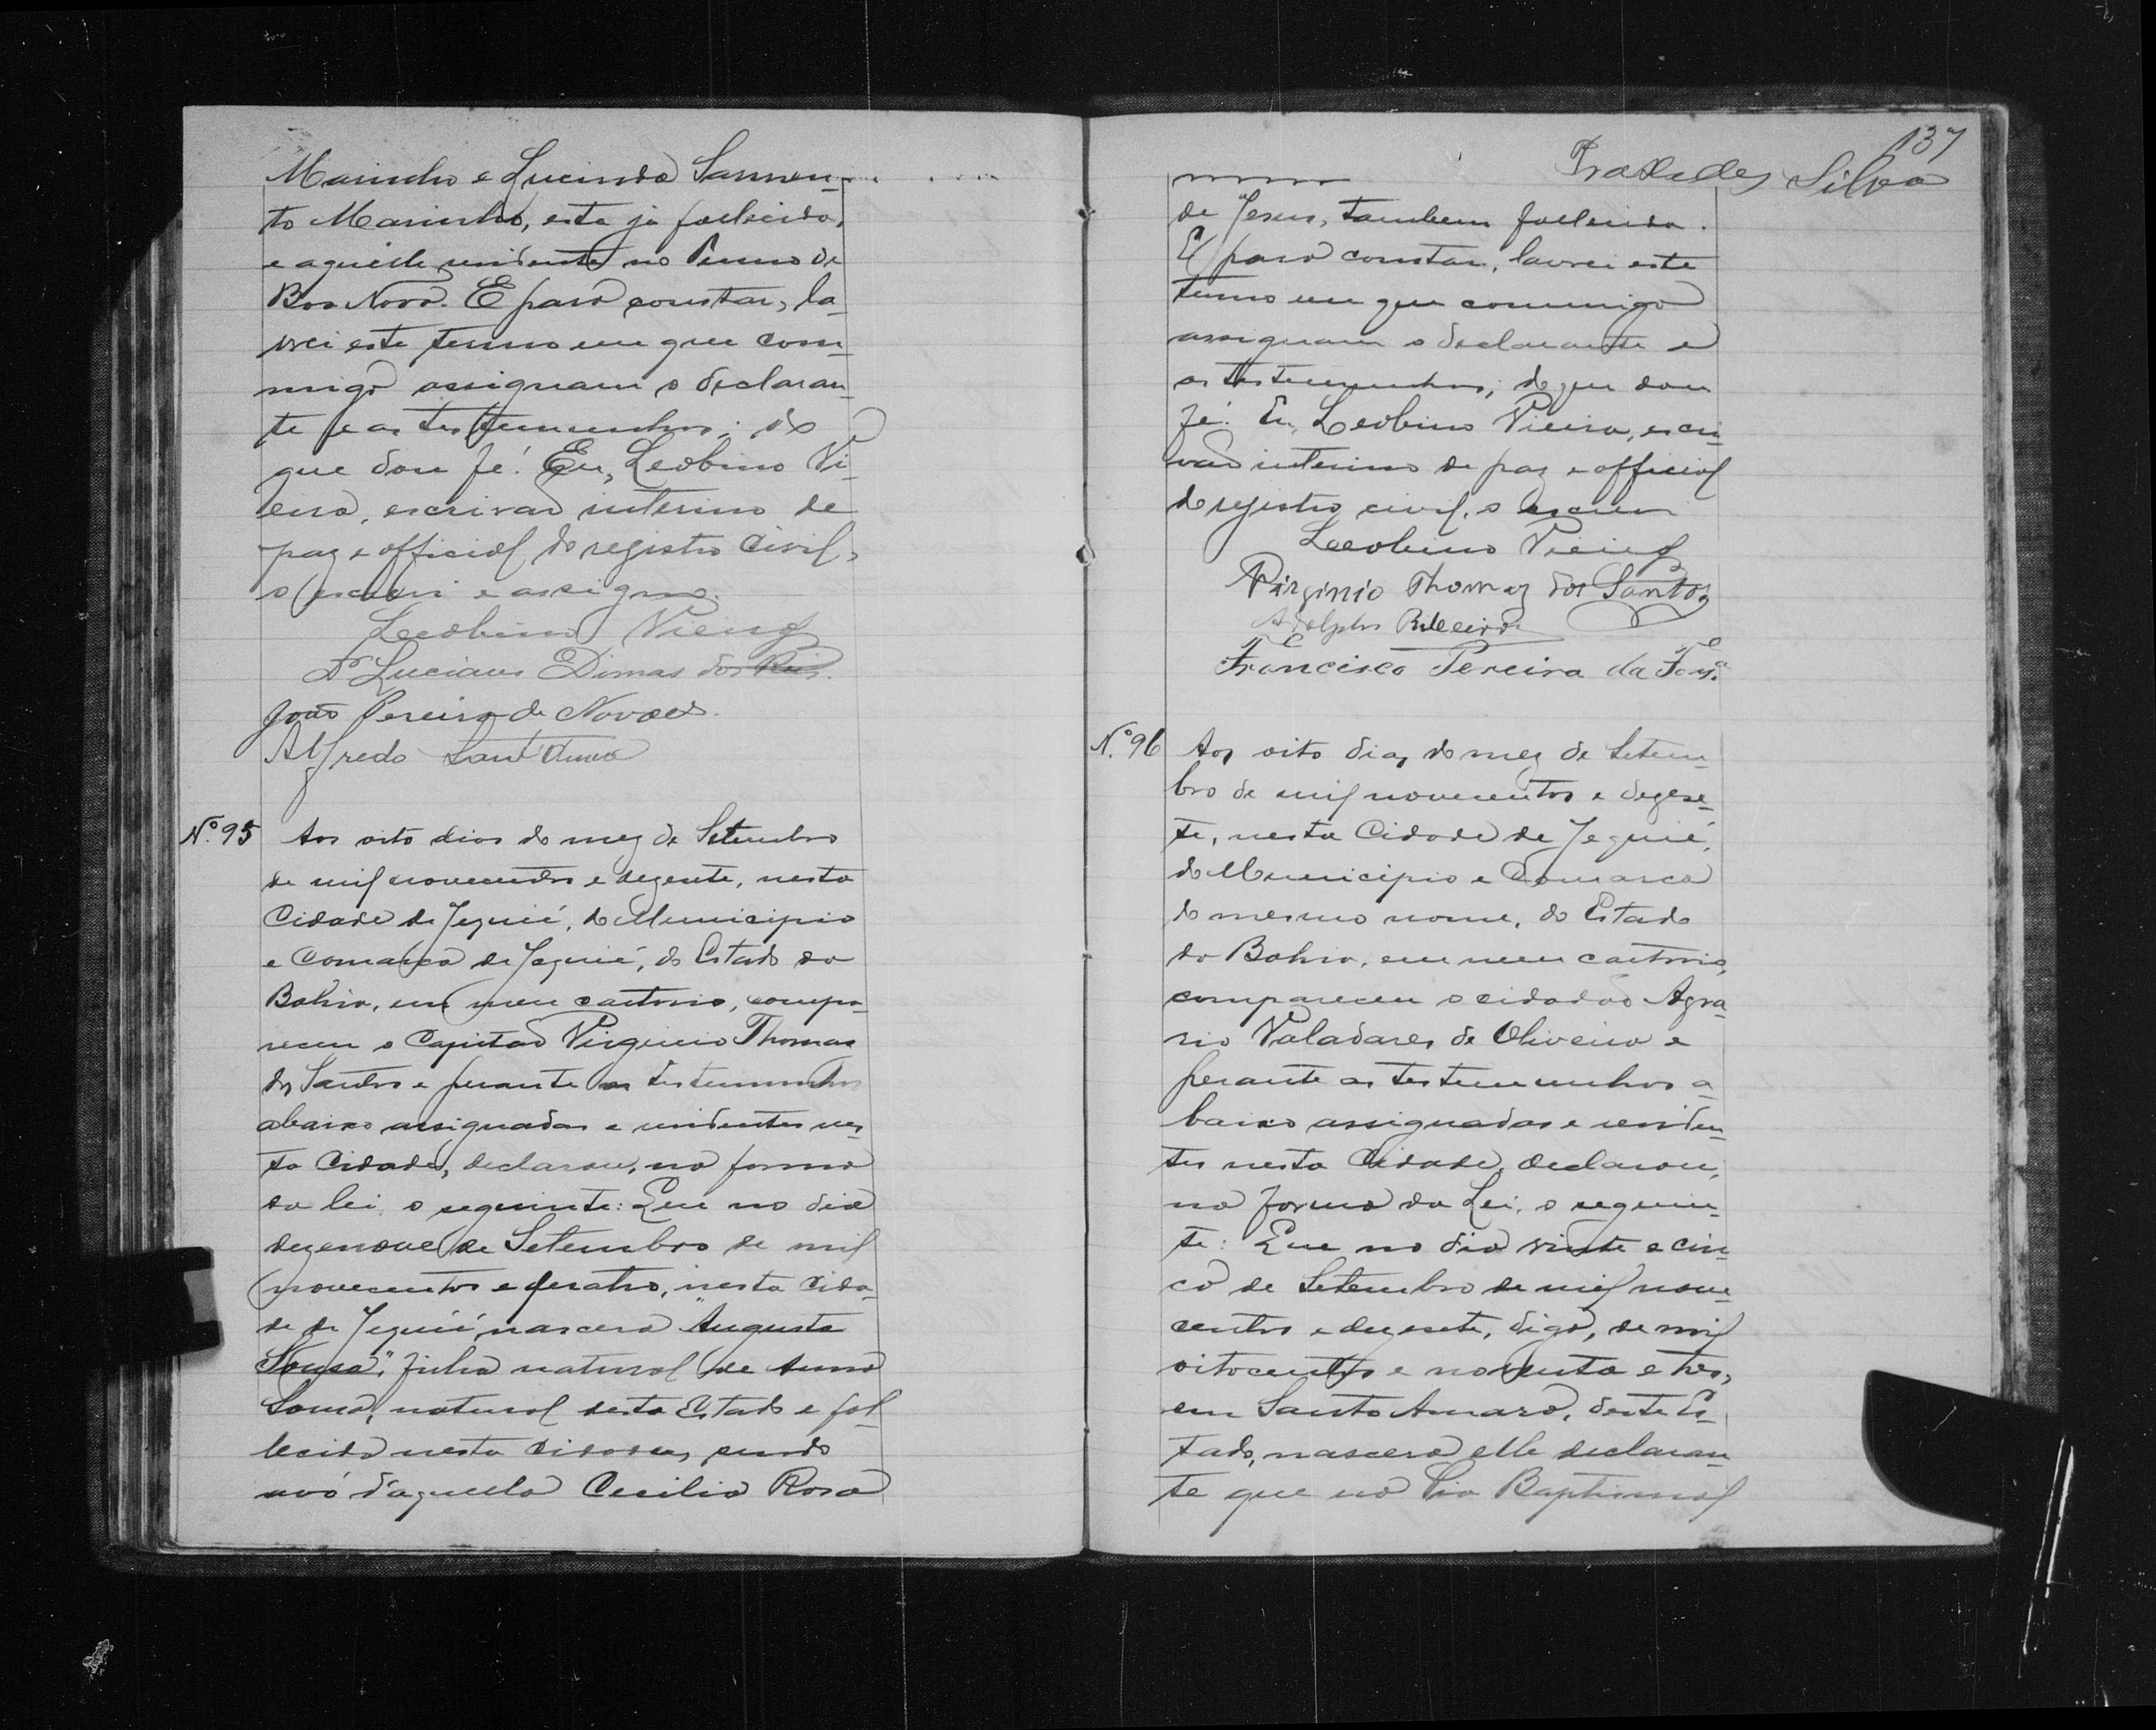 Marinho e Lucinda Sarmen-
to Marinho, esta já fallecida,
e aquelle residente no Termo de
Boa Nova. E para constar, la-
vrei este termo em que com-
migo assignam o declaran-
te e as testemunhas; do
que dou fé. Eu, Leobino Vi-
eira, escrivão interino de
paz e official do registro civil,
o escrevi e assigno.
Leobino Vieira
Dr Luciano Dimas dos Reis.
João Pereira de Novaes.
Alfredo Sant'Anna
Nº 95 Aos oito dias do mez de Setembro
de mil novecentos e dezesete, nesta
Cidade de Jequié, do Municipio
e Comarca de Jequié, do Estado da
Bahia, em meu cartorio, compa-
receu o Capitão Virginio Thomaz
dos Santos e perante as testemunhas
abaixo assignadas e residentes nes-
ta Cidade, declarou, na forma
da lei, o seguinte: Que no dia
dezenove de Setembro de mil
novecentos e quatro, nesta Cida-
de de Jequié nascera "Augusta
Sousa", filha natural de Anna
Sousa, natural deste Estado e fal-
lecida nesta Cidade, sendo
avó d'aquella Cecilia Rosa
137
Silva
de Jesus, tambem fallecida.
E para constar, lavrei este
termo em que commigo
assignam o declarante e
as testemunhas; do que dou
fé. Eu, Leobino Vieira, escri-
vão interino de paz e official
do registro civil, o escrevi
Leobino Vieira
Virginio Thomaz dos Santos
Adolpho Ribeiro
Francisco Pereira da
N.º 96 Aos oito dias do mez de Setem-
bro de mil novecentos e dezese-
te, nesta Cidade de Jequié,
do Municipio e Comarca
do mesmo nome, do Estado
da Bahia, em meu cartorio,
compareceu o cidadão Agra-
rio Valadares de Oliveira e
perante as testemunhas a-
baixo assignadas e residen-
tes nesta Cidade, declarou,
na forma da Lei, o seguin-
te: Que no dia vinte e cin-
co de Setembro de mil nove-
centos e dezesete, digo, de mil
oitocentos e noventa e tres,
em Santo Amaro, deste Es-
tado, nascera elle declaran-
te que na Pia Baptismal